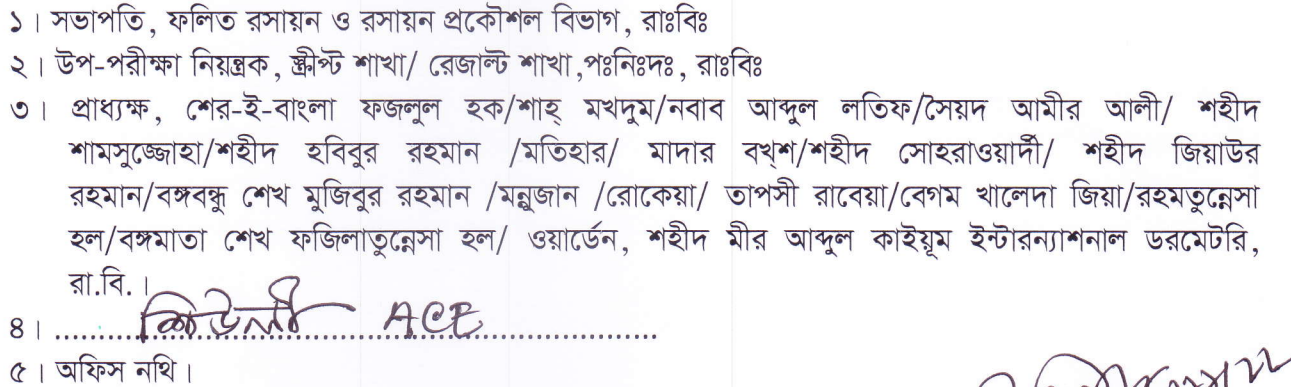 ১। সভাপতি, ফলিত রসায়ন ও রসায়ন প্রকৌশল বিভাগ, রাঃবিঃ
২। উপ-পরীক্ষা নিয়ন্ত্রক, স্ক্রীপ্ট শাখা/ রেজাল্ট শাখা,পঃনিঃদঃ, রাঃবিঃ
৩। প্রাধ্যক্ষ, শের-ই-বাংলা ফজলুল হক/শাহ্ মখদুম/নবাব আব্দুল লতিফ/সৈয়দ আমীর আলী/ শহীদ
শামসুজ্জোহা/শহীদ হবিবুর রহমান /মতিহার/ মাদার বখ্শ/শহীদ সোহরাওয়ার্দী/ শহীদ জিয়াউর
রহমান/বঙ্গবন্ধু শেখ মুজিবুর রহমান /মন্নুজান /রোকেয়া/ তাপসী রাবেয়া/বেগম খালেদা জিয়া/রহমতুন্নেসা
হল/বঙ্গমাতা শেখ ফজিলাতুন্নেসা হল/ ওয়ার্ডেন, শহীদ মীর আব্দুল কাইয়ূম ইন্টারন্যাশনাল ডরমেটরি,
রা.বি. ।
৪। শিউলী ACE
৫। অফিস নথি।